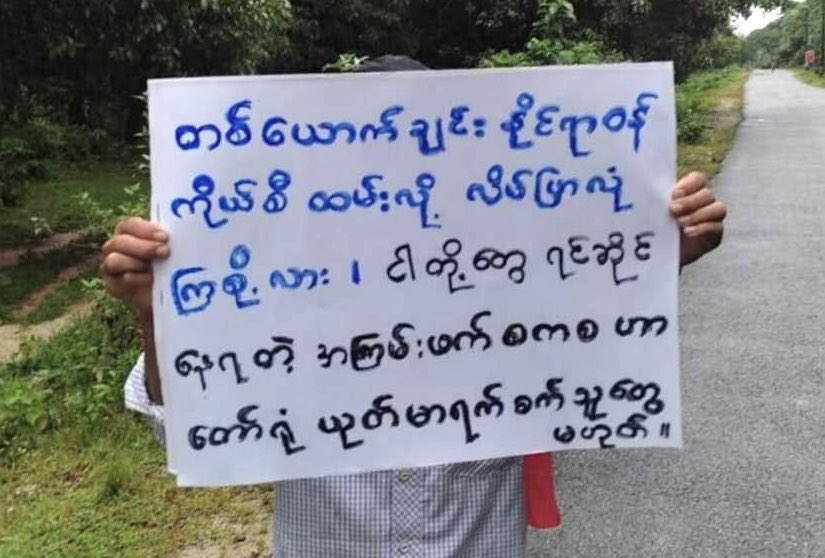 တစ်ယောက်ချင်း နိုင်ရာဝန်
ကိုယ်စီ ထမ်းလို့ လိပ်ပြာလုံ
ကြစို့လား ၊ ငါတို့တွေ ရင်ဆိုင်
နေရတဲ့ အကြမ်းဖက် စကစ ဟာ
တော်ရုံ ယုတ်မာရက်စက်သူတွေ
မဟုတ် ။